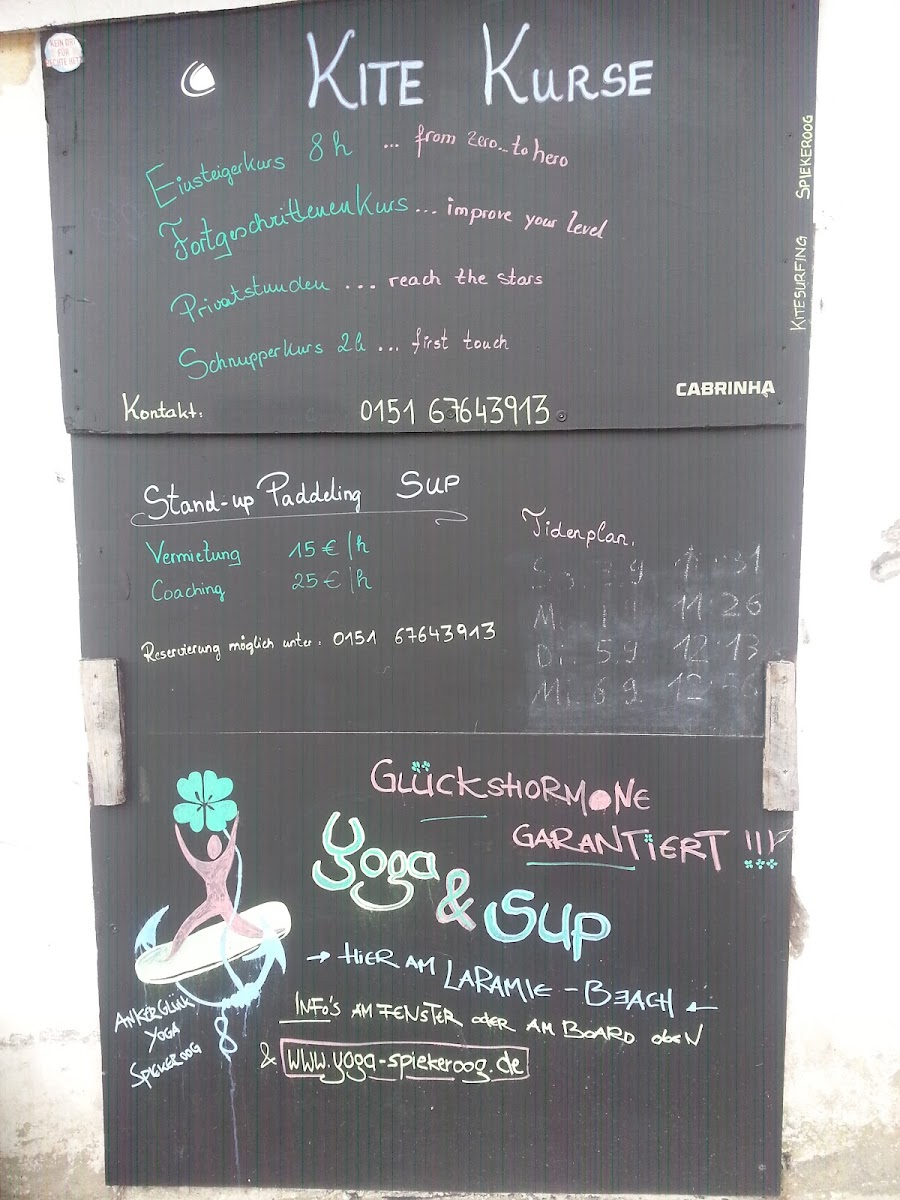 KEIN ORT
FÜR
KITE KURSE
Einsteigerkurs 8h ... from zero...to hero
Fortgeschrittenenkurs... improve your level
Privatstunden ... reach the stars
Schnupperkurs 2h ... first touch
KITESURFING SPIEKEROOG
CABRINHA
Kontakt: 0151 67643913
Stand-up Paddeling SUP
Vermietung 15€/h
Coaching 25€/h
Reservierung möglich unter: 0151 67643913
Tidenplan.
11:26
Di. 5.9 12:13
Mi. 6.9 12:56
GLÜCKSHORMONE
GARANTIERT !!!
Yoga
& SUP
→ HIER AM LARAMIE-BEACH ←
INFO'S AM FENSTER ODER AM BOARD OBEN
& www.yoga-spiekeroog.de
ANKERGLÜCK
YOGA
SPIEKEROOG